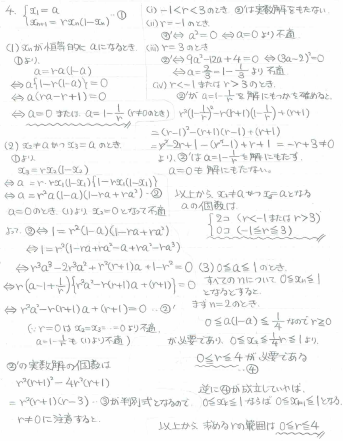 4. { x₁ = a
xₙ₊₁ = rxₙ(1-xₙ) …①
(1) xₙが恒等的に aになるとき、
①より、
a = ra(1-a)
⇔ a{1-r(1-a)} = 0
⇔ a(ra-r+1) = 0
⇔ a=0 または a = 1-1/r (r≠0のとき)
(2) x₂≠a かつ x₃=a のとき
①より、
x₃ = rx₂(1-x₂)
⇔ a = r・rx₁(1-x₁){1-rx₁(1-x₁)}
⇔ a = r²a(1-a)(1-ra+ra²) …②
a=0のとき (1)より x₂=0となって不適
よって ②⇔ 1 = r²(1-a)(1-ra+ra²)
⇔ 1 = r²(1-ra+ra²-a+ra²-ra³)
⇔ r³a³-2r³a²+r²(r+1)a+1-r² = 0
⇔ r(a-1+1/r){r²a²-r(r+1)a+(r+1)} = 0
⇔ r²a²-r(r+1)a+(r+1) = 0 …②'
(∵ r=0は x₂=x₃=…=0より不適
a=1-1/rも(1)より不適)
②'の実数解の個数は
r²(r+1)²-4r²(r+1)
= r²(r+1)(r-3) …③が判別式となるので
r≠0に注意すると、
(i) -1<r<3のとき、②'は実数解をもたない
(ii) r=-1のとき、
②'⇔ a²=0 ⇔ a=0より不適
(iii) r=3のとき
②'⇔ 9a²-12a+4=0 ⇔ (3a-2)²=0
⇔ a=2/3=1-1/3より不適
(iv) r<-1または r>3のとき、
②'が a=1-1/rを解にもつかを確めると、
r²(1-1/r)²-r(r+1)(1-1/r)+(r+1)
= (r-1)²-(r+1)(r-1)+(r+1)
= r²-2r+1-(r²-1)+r+1 = -r+3≠0
より、②'は a=1-1/rを解にもたず、
a=0も解にもたない。
以上から x₂≠aかつx₃=aとなる
aの個数は
{ 2コ (r<-1または r>3)
0コ (-1≦r≦3)
(3) 0≦a≦1のとき、
すべてのnについて 0≦xₙ≦1
となるとすると、
まず n=2のとき、
0≦a(1-a)≦1/4なので r≧0
が必要であり、0≦x₂≦1/4r≦1より、
0≦r≦4が必要である
④
逆に④が成立していれば、
0≦xₙ≦1ならば 0≦xₙ₊₁≦1となる
以上から 求めるrの範囲は 0≦r≦4